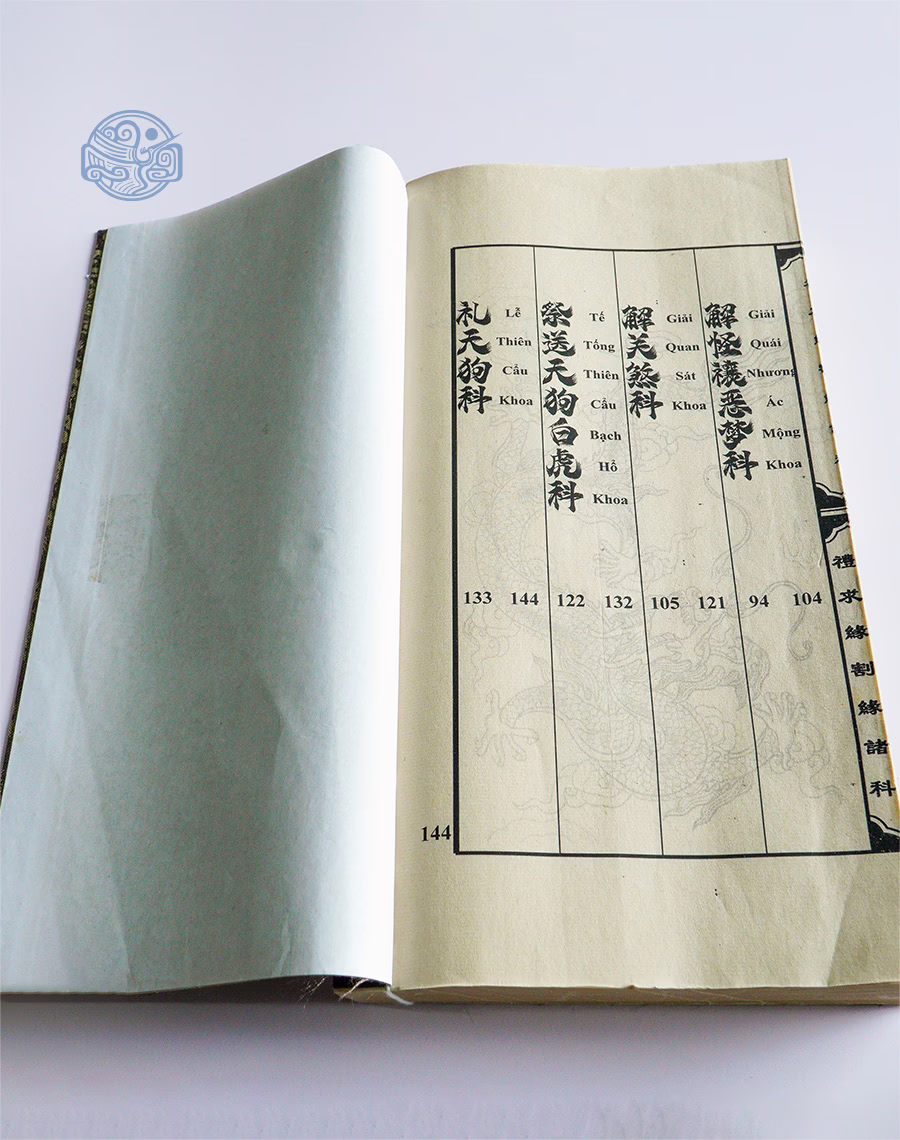 禮求緣割緣諸科
解怪禳恶梦科
Giải Quái Nhương Ác Mộng Khoa
94 104
解关煞科
Giải Quan Sát Khoa
105 121
祭送天狗白虎科
Tế Tống Thiên Cẩu Bạch Hổ Khoa
122 132
礼天狗科
Lễ Thiên Cẩu Khoa
133 144
144